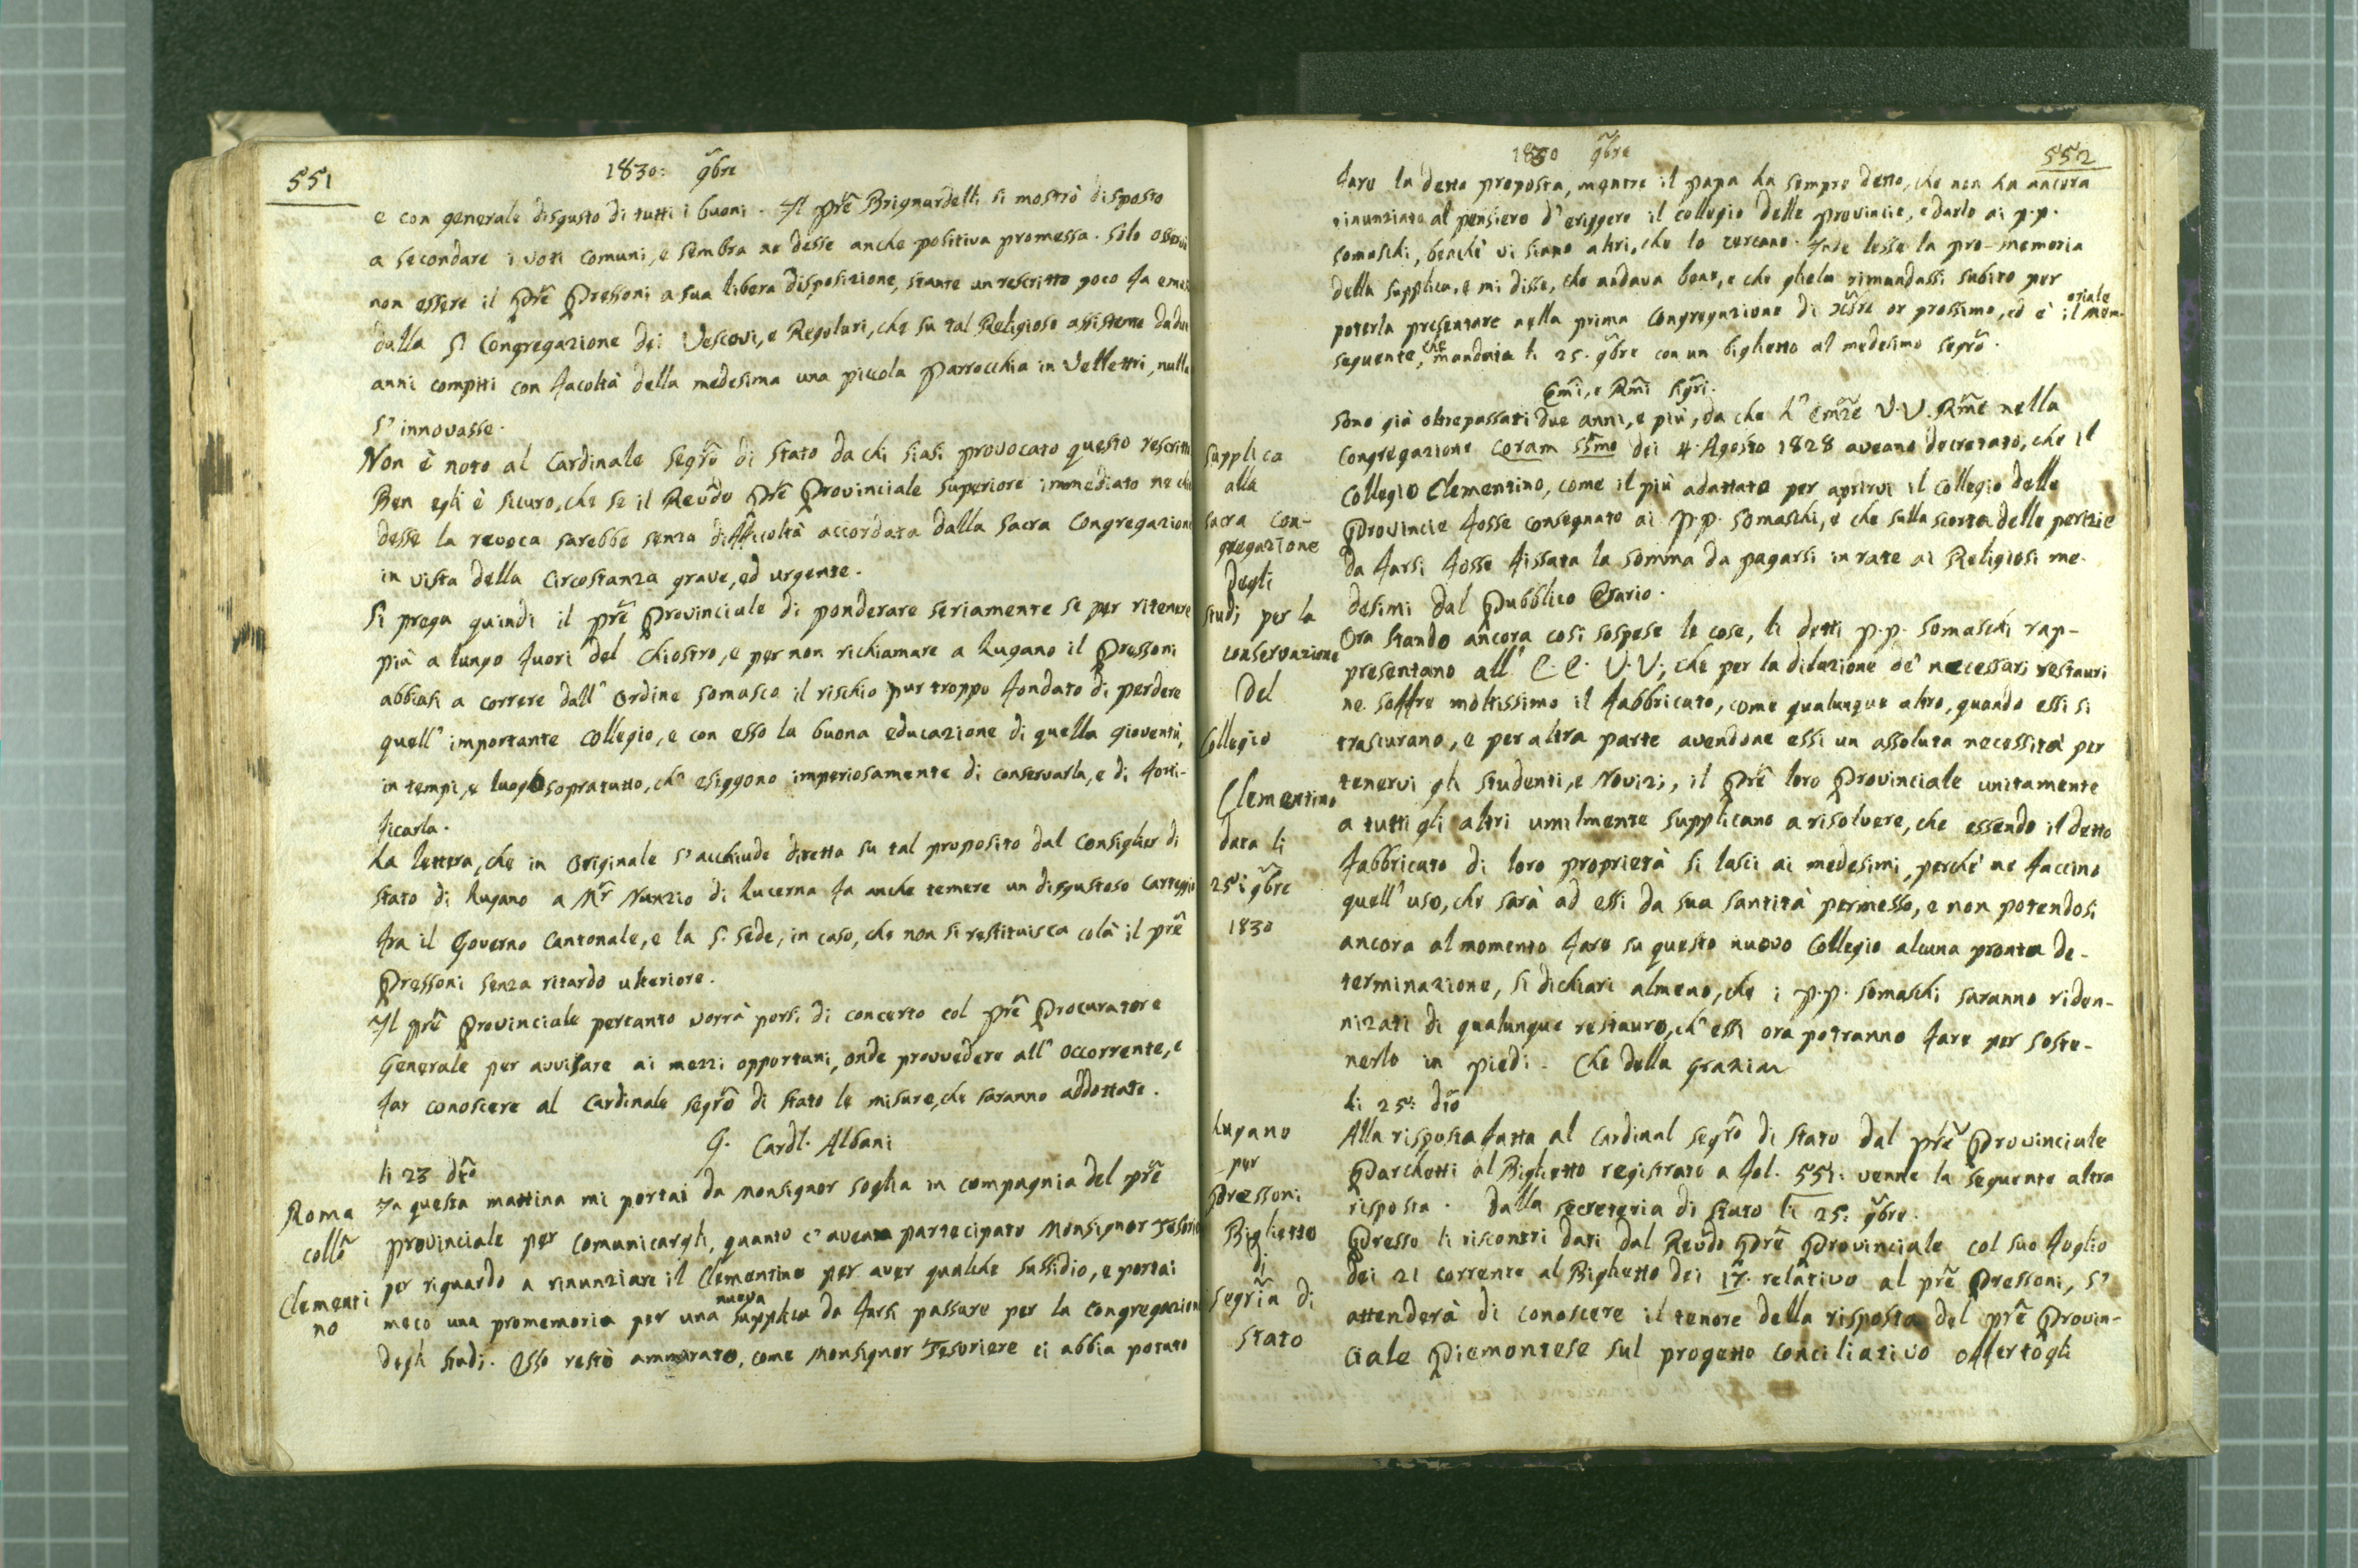 551
1830: 9bre
e con generale disgusto di tutti i buoni. Il Pre Brignardelli si mostrò disposto
a secondare i voti comuni, e sembra ne desse anche positiva promessa. Solo osservò
non essere il Pre Pressoni a sua libera disposizione, stante un rescritto poco fa
dalla S. Congregazione dei Vescovi, e Regolari, che su tal Religioso assistente da due
anni compiti con facoltà della medesima una piccola Parrocchia in Vellettri, nulla
s'innovasse.
Non è noto al Cardinale Segrio di Stato da chi siasi provocato questo rescritto
Ben egli è sicuro, che se il Revdo Pre Provinciale Superiore immediato ne chie
desse la revoca sarebbe senza difficoltà accordata dalla Sacra Congregazione
in vista della circostanza grave, ed urgente.
Si prega quindi il Pre Provinciale di ponderare seriamente se per ritenere
più a lungo fuori del Chiostro, e per non richiamare a Lugano il Pressoni
abbiasi a correre dall'Ordine Somasco il rischio pur troppo fondato di perdere
quell'importante Collegio, e con esso la buona educazione di quella gioventù,
in tempi, e luoghi sopratutto, ch'esiggono imperiosamente di conservarla, e di forti-
ficarla.
La lettera, che in Originale s'acchiude diretta su tal proposito dal Consiglier di
Stato di Lugano a Mr Nunzio di Lucerna fa anche temere un disgustoso carteggio
fra il Governo Cantonale, e la S. Sede, in caso, che non si restituisca colà il Pre
Pressoni senza ritardo ulteriore.
Il Pre Provinciale pertanto vorrà porsi di concerto col Pre Procuratore
Generale per avvisare ai mezzi opportuni, onde provvedere all'occorrente, e
far conoscere al Cardinale Segrio di Stato le misure, che saranno addottate.
G. Cardl. Albani
li 23 dto
Roma
collo
Clementi
no
In questa mattina mi portai da Monsignor Soglia in compagnia del Pre
Provinciale per comunicargli, quanto c'aveva partecipato Monsignor Tesorie
per riguardo a rinunziare il Clementino per aver qualche sussidio, e portai
meco una promemoria per una nuova supplica da farsi passare per la Congregazione
degli Studi. Esso restò ammirato, come Monsignor Tesoriere ci abbia potuto
552
1830 9bre
fare la detta proposta, mentre il Papa ha sempre detto, che non ha ancora
rinunziato al pensiero d'eriggere il collegio delle Provincie, e darlo ai P.P.
Somaschi, benchè vi siano altri, che lo cercano. Indi lesse la pro-memoria
della supplica, e mi disse, che andava bene, e che gliela rimandassi subito per
poterla presentare nella prima Congregazione di Xbre or prossimo, ed è il mem-oriale
seguente, che mandaia li 25. 9bre con un biglietto al medesimo Segrio.
Emi, e Rmi Sigri.
Supplica
alla
Sacra Con-
gregazione
degli
studi per la
conservazione
del
Collegio
Clementino
data li
25: 9bre
1830
Sono già oltrepassati due anni, e più, da che l'Emze V.V. Rme nella
Congregazione coram SSmo dei 4 Agosto 1828 aveano decretato, che il
Collegio Clementino, come il più adattato per aprirvi il Collegio delle
Provincie fosse consegnato ai P.P. Somaschi, e che sulla scorta delle perizie
da farsi fosse fissata la somma da pagarsi in rate ai Religiosi me-
desimi dal Pubblico Erario.
Ora stando ancora così sospese le cose, li detti P.P. Somaschi rap-
presentano all'E.E. V.V., che per la dilazione de' necessari restauri
ne soffre moltissimo il fabbricato, come qualunque altro, quando essi si
trascurano, e per altra parte avendone essi un assoluta necessità per
tenervi gli studenti, e Novizi, il Pre loro Provinciale unitamente
a tutti gli altri umilmente supplicano a risolvere, che essendo il detto
fabbricato di loro proprietà si lasci ai medesimi, perchè ne faccino
quell'uso, che sarà ad essi da sua Santità permesso, e non potendosi
ancora al momento fare su questo nuovo Collegio alcuna pronta de-
terminazione, si dichiari almeno, che i P.P. Somaschi saranno riden-
nizati di qualunque restauro, ch'essi ora potranno fare per soste-
nerlo in piedi. Che della grazia
li 25: dto
Lugano
per
Pressoni
Biglietto
di
Segria di
Stato
Alla risposta fatta al Cardinal Segrio di Stato dal Pre Provinciale
Parchetti al Biglietto registrato a fol. 551: venne la seguente altra
risposta. Dalla Secreteria di Stato li 25: 9bre.
Presso li riscontri dati dal Revdo Pre Provinciale col suo foglio
dei 21 corrente al Biglietto dei 17. relativo al Pre Pressoni, s'
attenderà di conoscere il tenore della risposta del Pre Provin-
ciale Piemontese sul progetto conciliativo offertogli